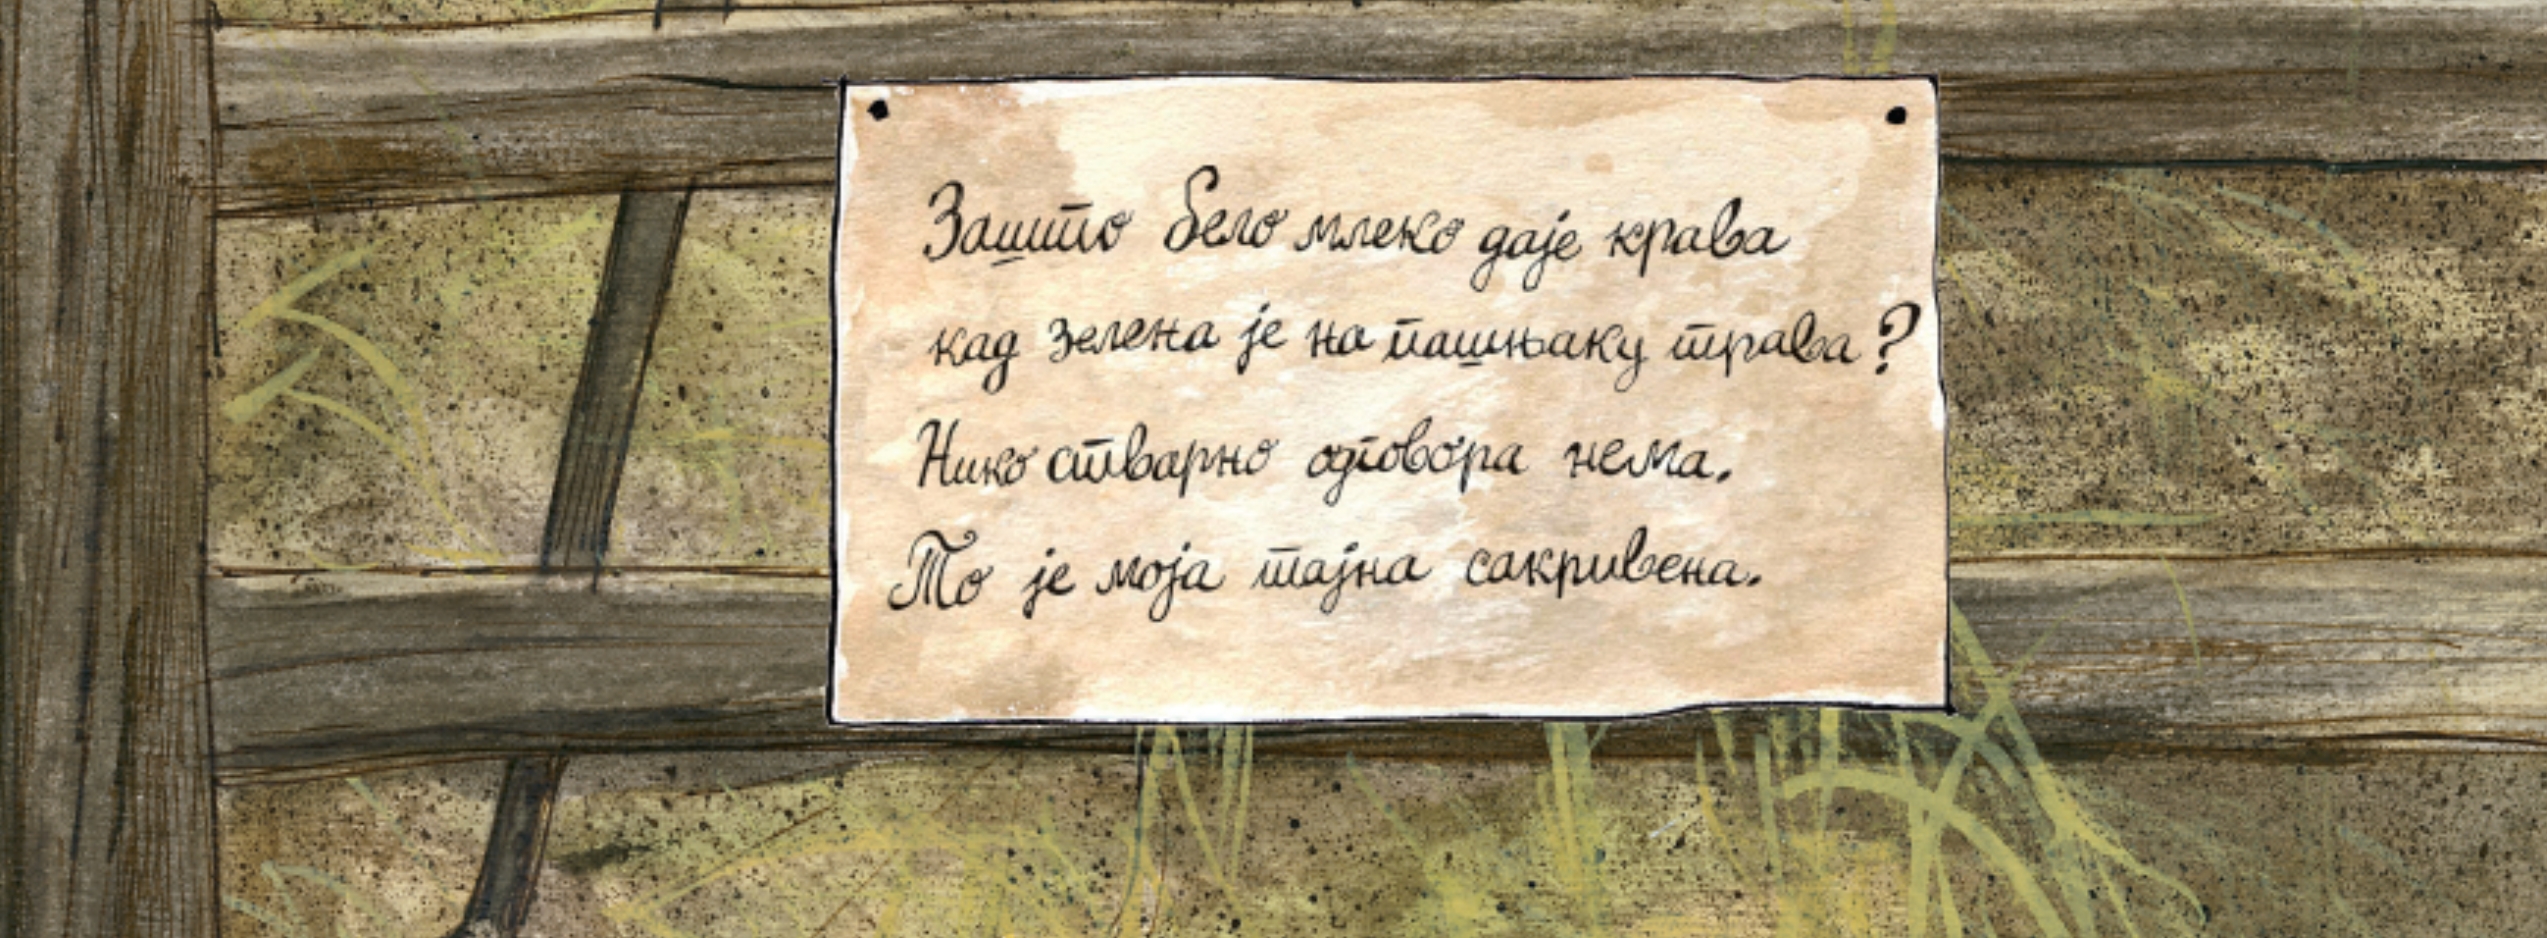 Зашто бело млеко даје крава
кад зелена је на пашњаку трава?
Нико стварно одговора нема.
То је моја тајна сакривена.